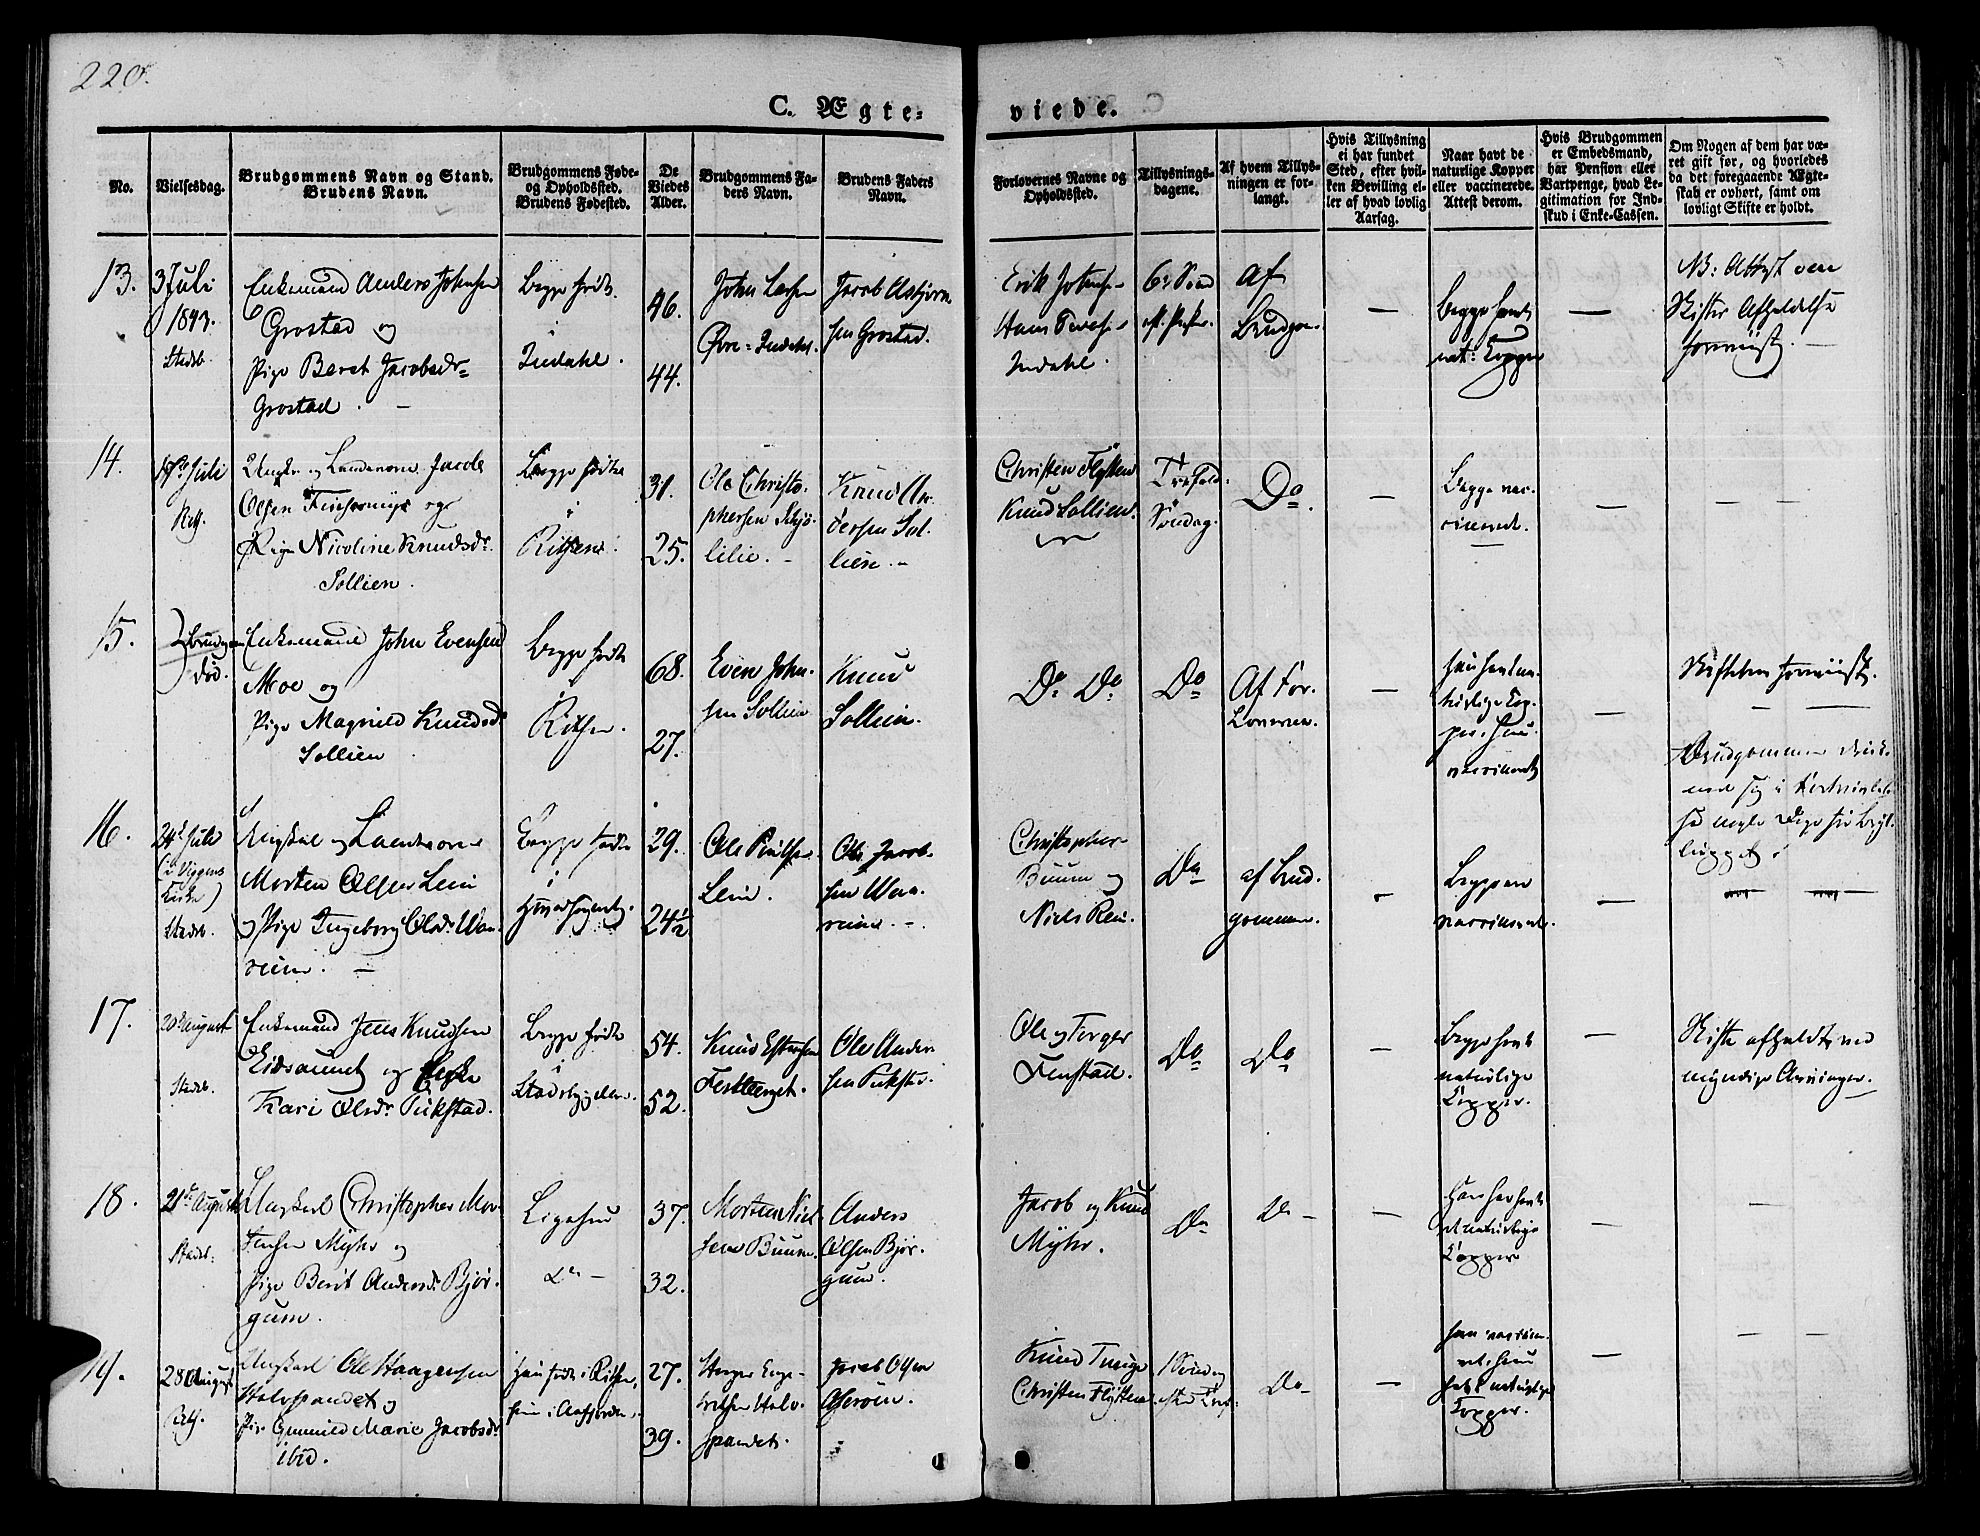 220.
C. Ægte-
viede.
No.
Vielsesdag.
Brudgommens Navn og Stand.
Brudens Navn.
Brudgommens Føde-
og Opholdssted.
Brudens Fødested.
De
Viedes
Alder.
Brudgommens Fa-
ders Navn.
Brudens Faders
Navn.
Forlovernes Navne og
Opholdssted.
Tillysnings-
dagene.
Af hvem Tillys-
ningen er for-
langt.
Hvis Tillysning
ei har fundet
Sted, efter hvil-
ken Bevilling el-
ler af hvad lovlig
Aarsag.
Naar havt de
naturlige Kopper
eller vaccinerede.
Attest derom.
Hvis Brudgommen
er Embedsmand,
har Pension eller
Vartpenge, hvad Le-
gitimation for Ind-
skud i Enke-Cassen.
Om Nogen af dem har væ-
ret gift før, og hvorledes
da det foregaaende Ægte-
skab er ophørt, samt om
lovligt Skifte er holdt.
13.
3 Juli
1843.
Stadsb.
Enkemand Anders Johnsen
Grostad og
Pige Beret Jacobsdr
Grostad.
Begge fødte
i
Indahl.
46.
44.
John Larsen
Øvre-Indahl.
Jacob Asbjørn-
sen Grostad.
Erik Johnsen
Hans
Indahl.
6e Sønd
Af
Brudgom
Begge havt
nat: Kopper
NB: Attest om
Skiftes Afholdelse
forevist.
14.
Juli
Ritf.
Ungk. og Landevern Jacob
Olsen og
Pige Nicoline Knudsdr.
Sollien.
Begge fødte
i
Ritsen.
31.
25.
Ole Christo-
phersen Skjø-
lilie.
Knud An-
dersen Sol-
lien.
Christen Flytten
Knud Sollien.
Trefold.
Søndag.
Do.
Begge vac-
cinered.
15.
Brudgom
død.
Enkemand John Evensen
Moe og
Pige Magnild Knudsd.
Sollien
Begge fødte
i
Ritsen.
68.
27.
Even John-
sen Sollien
Knud
Sollien.
Do Do
Do
Af For-
loveren.
han havt na-
turlige Kop-
per, hun
vaccineret
Skiftebrev forevist.
Brudgommen
sig i
Bryl-
luppet.
16.
24d Juli
(i Viggens
Kirke)
Stadsb.
Ungkarl og Landevern
Morten Olsen Lein
og Pige Ingeborg Olsdr. Wan-
rum.
Begge fødte
i
29.
24½
Ole
Lein.
Ole Jacob-
sen Wan-
rum.
Christopher
Buum og
Niels Rein.
Do
af Brud-
gommen.
Begge ere
vaccinered.
17.
20d August
Stadsb.
Enkemand Jens Knudsen
Eidsaunet og Enke
Kari Olsdr. Pukstad.
Begge fødte
i
Stadsbygden.
54.
52.
Knud Estensen
Ole Ander-
sen Pukstad.
Ole og Torger
Fenstad.
Do
Do
Begge havt
naturlige
Kopper.
Skifte afholdt med
myndige Arvinger.
18.
21de August
Stadsb.
Ungkarl Christopher Mor-
tensen Myhr og
Pige Berit Andersdr. Bjør-
gum.
Ligesaa
Do
37.
32.
Morten Niel-
sen Buum.
Anders
Olsen Bjør-
gum.
Jacob og Knud
Myhr.
Do
Do
Han har havt
de naturlige
Kopper
19.
28 August
Ritf.
Ungkarl Ole Haagensen
Halvspandet og
Pige Gunnild Marie Jacobsdr.
ibid.
Han født i Ritsen,
hun i Aafjorden.
27.
39.
Haagen
Halv-
spandet.
Jacob Olsen
Knud
Christen Flytten
1 Søndag
Do
han vaccine-
ret, hun
havt naturlige
Kopper.